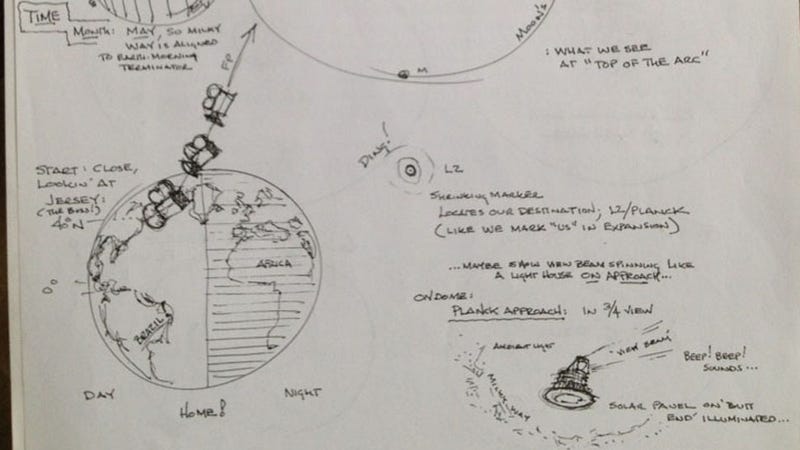 TIME
MONTH: MAY, SO MILKY
WAY IS ALIGNED
TO EARTH-MORNING
TERMINATOR
FP
MOON'S
M
: WHAT WE SEE
AT "TOP OF THE ARC"
DING!
L2
START: CLOSE,
LOOKIN' AT
JERSEY:
40°N
SHRINKING MARKER
LOCATES OUR DESTINATION, L2/PLANCK
(LIKE WE MARK "US" IN EXPANSION)
...MAYBE SHOW VIEW BEAM SPINNING LIKE
A LIGHT HOUSE ON APPROACH...
AFRICA
0°
BRAZIL
ON DOME:
PLANCK APPROACH: IN 3/4 VIEW
ANCIENT LIGHT
"VIEW BEAM"
BEEP! BEEP!
SOUNDS...
MILKY WAY
SOLAR PANEL ON 'BUTT
END' ILLUMINATED...
DAY
NIGHT
HOME!